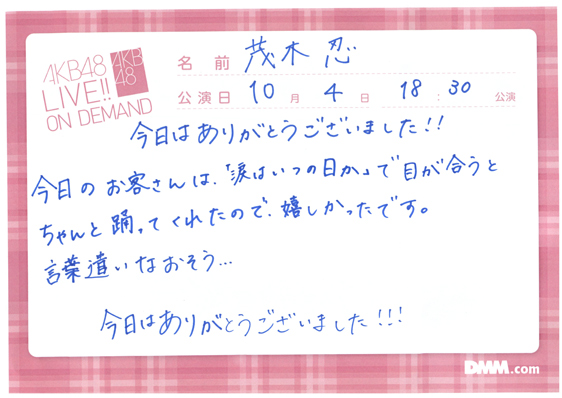 AKB48
LIVE!!
ON DEMAND
AKB
48
名前 茂木忍
公演日 10月 4日 18:30 公演
今日はありがとうございました!!
今日のお客さんは、「涙はいつの日か」で目が合うと
ちゃんと踊ってくれたので、嬉しかったです。
言葉遣いなおそう...
今日はありがとうございました!!!
DMM.com